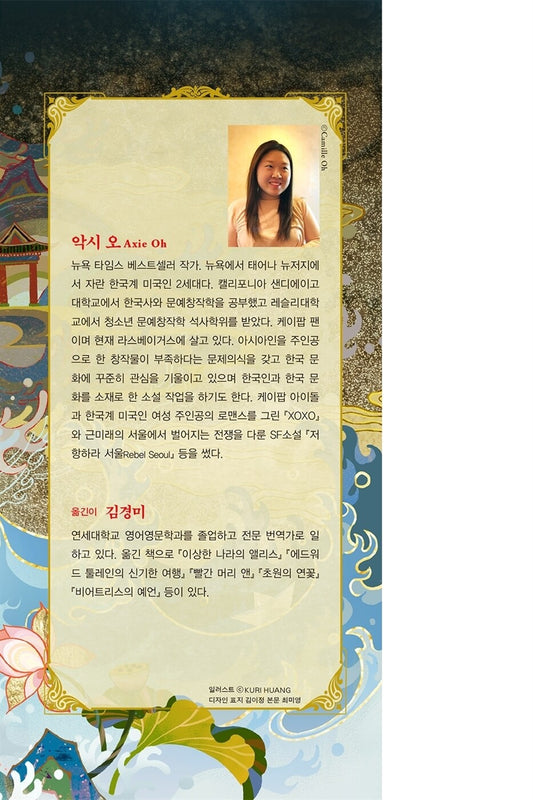 ©Camille Oh
악시 오 Axie Oh
뉴욕 타임스 베스트셀러 작가. 뉴욕에서 태어나 뉴저지에
서 자란 한국계 미국인 2세대다. 캘리포니아 샌디에이고
대학교에서 한국사와 문예창작학을 공부했고 레슬리대학
교에서 청소년 문예창작학 석사학위를 받았다. 케이팝 팬
이며 현재 라스베이거스에 살고 있다. 아시아인을 주인공
으로 한 창작물이 부족하다는 문제의식을 갖고 한국 문
화에 꾸준히 관심을 기울이고 있으며 한국인과 한국 문
화를 소재로 한 소설 작업을 하기도 한다. 케이팝 아이돌
과 한국계 미국인 여성 주인공의 로맨스를 그린 『XOXO』
와 근미래의 서울에서 벌어지는 전쟁을 다룬 SF소설 『저
항하라 서울Rebel Seoul』 등을 썼다.
옮긴이 김경미
연세대학교 영어영문학과를 졸업하고 전문 번역가로 일
하고 있다. 옮긴 책으로 『이상한 나라의 앨리스』 『에드워
드 툴레인의 신기한 여행』 『빨간 머리 앤』 『초원의 연꽃』
『비어트리스의 예언』 등이 있다.
일러스트 ⓒKURI HUANG
디자인 표지 김이정 본문 최미영